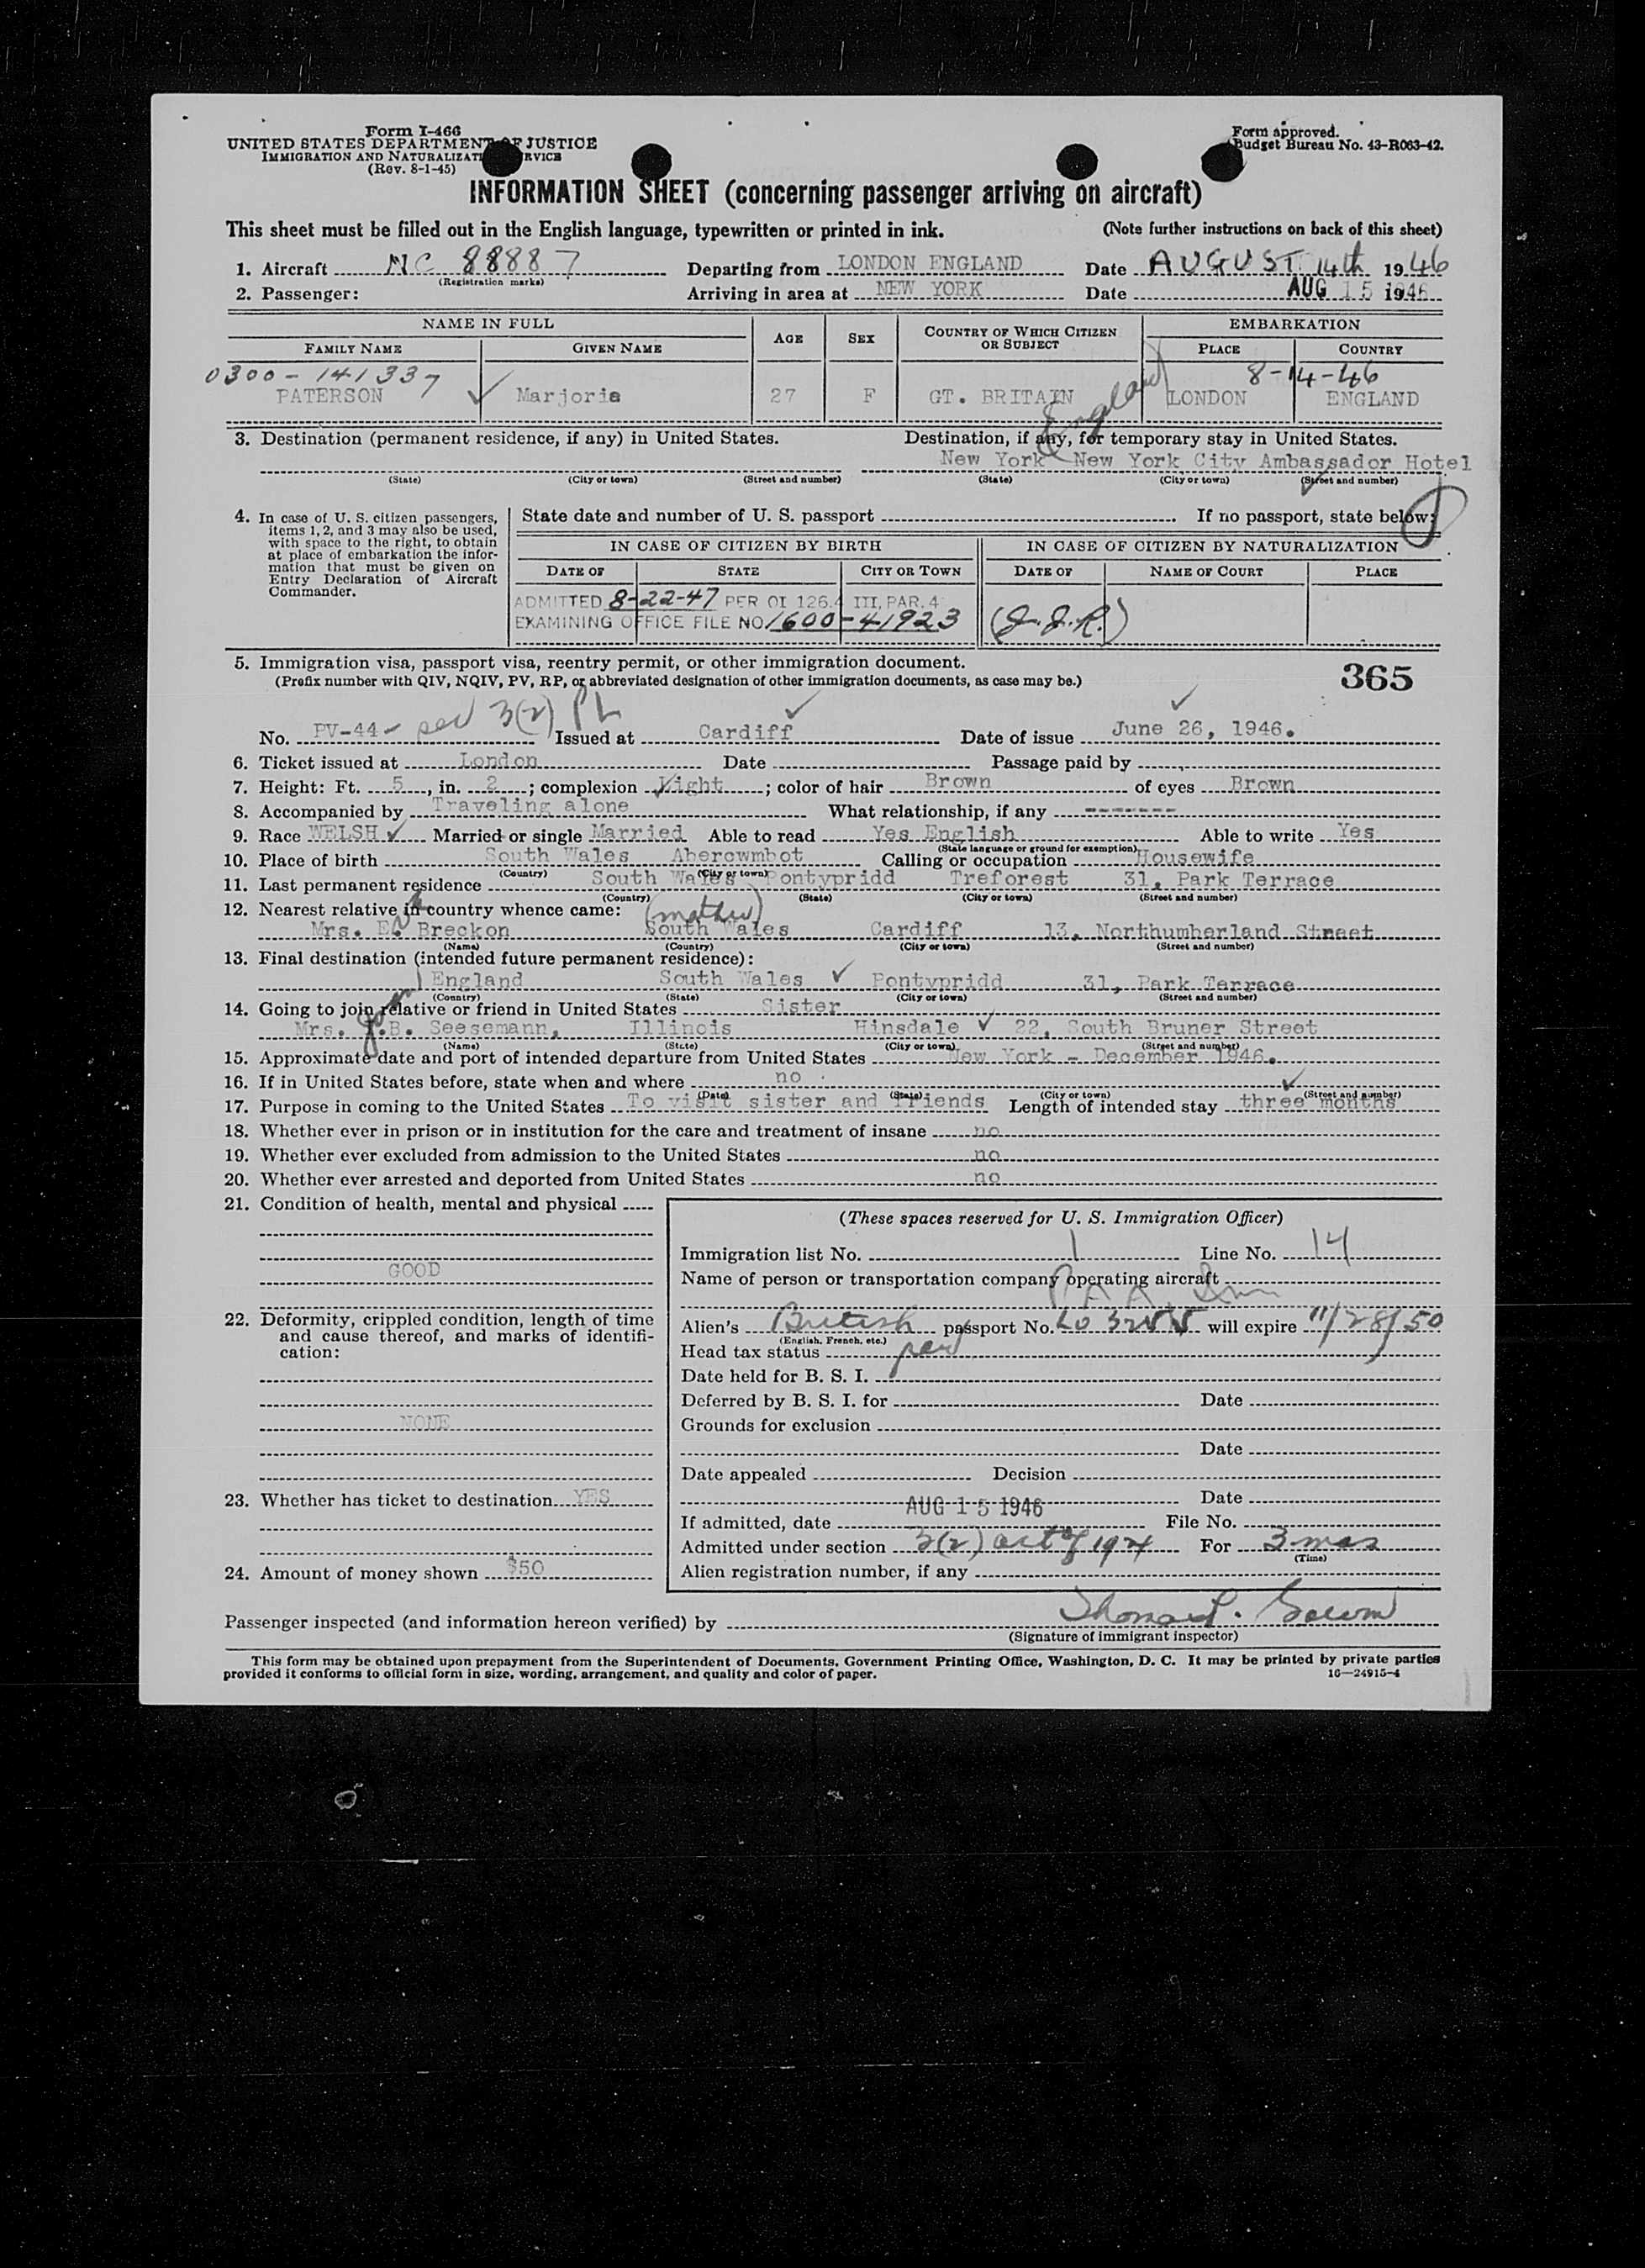 Form I-466
UNITED STATES DEPARTMENT OF JUSTICE
IMMIGRATION AND NATURALIZATI RVICE
(Rev. 8-1-45)
Form approved.
Budget Bureau No. 43-R063-42.
INFORMATION SHEET (concerning passenger arriving on aircraft)
This sheet must be filled out in the English language, typewritten or printed in ink. (Note further instructions on back of this sheet)
1. Aircraft NC 88887 Departing from LONDON ENGLAND Date AUGUST 14th 1946
(Registration marks)
2. Passenger: Arriving in area at NEW YORK Date AUG 15 1946
NAME IN FULL AGE SEX COUNTRY OF WHICH CITIZEN OR SUBJECT EMBARKATION
FAMILY NAME GIVEN NAME PLACE COUNTRY
0300-141337 8-14-46
PATERSON Marjorie 27 F GT. BRITAIN England LONDON ENGLAND
3. Destination (permanent residence, if any) in United States. Destination, if any, for temporary stay in United States.
New York New York City Ambassador Hotel
(State) (City or town) (Street and number) (State) (City or town) (Street and number)
4. In case of U. S. citizen passengers, items 1, 2, and 3 may also be used, with space to the right, to obtain at place of embarkation the information that must be given on Entry Declaration of Aircraft Commander.
State date and number of U. S. passport If no passport, state below:
IN CASE OF CITIZEN BY BIRTH IN CASE OF CITIZEN BY NATURALIZATION
DATE OF STATE CITY OR TOWN DATE OF NAME OF COURT PLACE
ADMITTED 8-22-47 PER OI 126.4 III, PAR. 4
EXAMINING OFFICE FILE NO. 1600-41923 (J.J.R.)
5. Immigration visa, passport visa, reentry permit, or other immigration document.
(Prefix number with QIV, NQIV, PV, RP, or abbreviated designation of other immigration documents, as case may be.)
365
No. PV-44- 3(2) Issued at Cardiff Date of issue June 26, 1946.
6. Ticket issued at London Date Passage paid by
7. Height: Ft. 5, in. 2; complexion Light; color of hair Brown of eyes Brown
8. Accompanied by Traveling alone What relationship, if any -------
9. Race WELSH Married or single Married Able to read Yes English Able to write Yes
(State language or ground for exemption)
10. Place of birth South Wales Abercwmbot Calling or occupation Housewife
(Country) (City or town)
11. Last permanent residence South Wales Pontypridd Treforest 31, Park Terrace
(Country) (State) (City or town) (Street and number)
12. Nearest relative in country whence came: (mother)
Mrs. E. Breckon South Wales Cardiff 13, Northumberland Street
(Name) (Country) (City or town) (Street and number)
13. Final destination (intended future permanent residence):
England South Wales Pontypridd 31, Park Terrace
(Country) (State) (City or town) (Street and number)
14. Going to join relative or friend in United States Sister
Mrs. J.B. Seesemann, Illinois Hinsdale 22, South Bruner Street
(Name) (State) (City or town) (Street and number)
15. Approximate date and port of intended departure from United States New York - December 1946.
16. If in United States before, state when and where no
(Date) (State) (City or town) (Street and number)
17. Purpose in coming to the United States To visit sister and friends Length of intended stay three months
18. Whether ever in prison or in institution for the care and treatment of insane no
19. Whether ever excluded from admission to the United States no
20. Whether ever arrested and deported from United States no
21. Condition of health, mental and physical
GOOD
22. Deformity, crippled condition, length of time and cause thereof, and marks of identification:
NONE
23. Whether has ticket to destination YES
24. Amount of money shown $50
(These spaces reserved for U. S. Immigration Officer)
Immigration list No. 1 Line No. 14
Name of person or transportation company operating aircraft
P A A
Alien's British passport No. will expire 11/28/50
(English, French, etc.)
Head tax status
Date held for B. S. I.
Deferred by B. S. I. for Date
Grounds for exclusion
Date
Date appealed Decision
Date
AUG 15 1946
If admitted, date File No.
Admitted under section 3(2) act of 1924 For 3 mos
(Time)
Alien registration number, if any
Passenger inspected (and information hereon verified) by
(Signature of immigrant inspector)
This form may be obtained upon prepayment from the Superintendent of Documents, Government Printing Office, Washington, D. C. It may be printed by private parties
provided it conforms to official form in size, wording, arrangement, and quality and color of paper. 16—24915-4